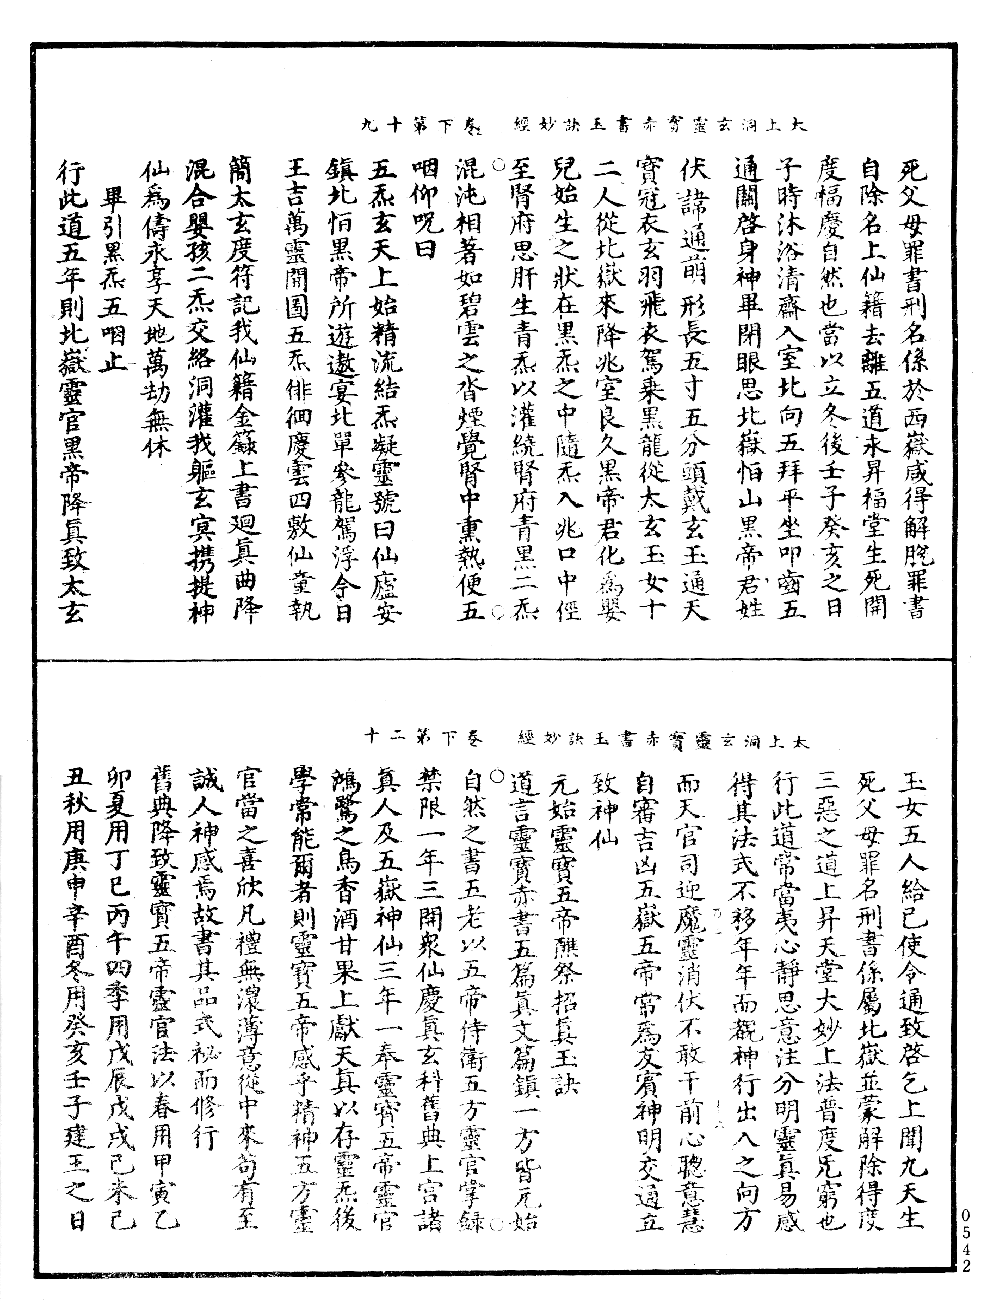 太上洞玄靈寶赤書玉訣妙經 卷下第十九
死父母罪書刑名係於西嶽咸得解脫罪書
自除名上仙籍去離五道永昇福堂生死開
度福慶自然也當以立冬後壬子癸亥之日
子時沐浴清齋入室北向五拜平坐叩齒五
通關啓身神畢閉眼思北嶽恒山黑帝君姓
伏諱通萌形長五寸五分頭戴玄玉通天
寶冠衣玄羽飛衣駕乘黑龍從太玄玉女十
二人從北嶽來降兆室良久黑帝君化爲嬰
兒始生之狀在黑炁之中隨炁入兆口中徑
至腎府思肝生青炁以灌繞腎府青黑二炁
混沌相著如碧雲之沓煙覺腎中熏熱便五
咽仰呪曰
五炁玄天上始精流結炁凝靈號曰仙廬安
鎮北恒黑帝所遊遨宴北單參龍駕浮今日
王吉萬靈開圖五炁俳徊慶雲四敷仙童執
簡太玄度符記我仙籍金籙上書迴真曲降
混合嬰孩二炁交絡洞灌我軀玄冥携提神
仙爲儔永享天地萬劫無休
畢引黑炁五咽止
行此道五年則北嶽靈官黑帝降真致太玄
太上洞玄靈寶赤書玉訣妙經 卷下第二十
玉女五人給已使令通致啓乞上聞九天生
死父母罪名刑書係屬北嶽並蒙解除得度
三惡之道上昇天堂大妙上法普度無窮也
行此道常當夷心靜思意注分明靈真易感
得其法式不移年年而覩神行出入之向方
而天官司迎魔靈消伏不敢干前心聰意慧
自審吉凶五嶽五帝常爲友賓神明交通立
致神仙
元始靈寶五帝醮祭招真玉訣
道言靈寶赤書五篇真文篇鎮一方皆元始
自然之書五老以五帝侍衛五方靈官掌録
禁限一年三開衆仙慶真玄科舊典上宮諸
真人及五嶽神仙三年一奉靈寶五帝靈官
鴻鷺之鳥香酒甘果上獻天真以存靈炁後
學常能爾者則靈寶五帝感乎精神五方靈
官當之喜欣凡禮無濃薄意從中來苟有至
誠人神感焉故書其品式祕而修行
舊典降致靈寶五帝靈官法以春用甲寅乙
卯夏用丁巳丙午四季用戊辰戊戌己未己
丑秋用庚申辛酉冬用癸亥壬子建王之日
0542